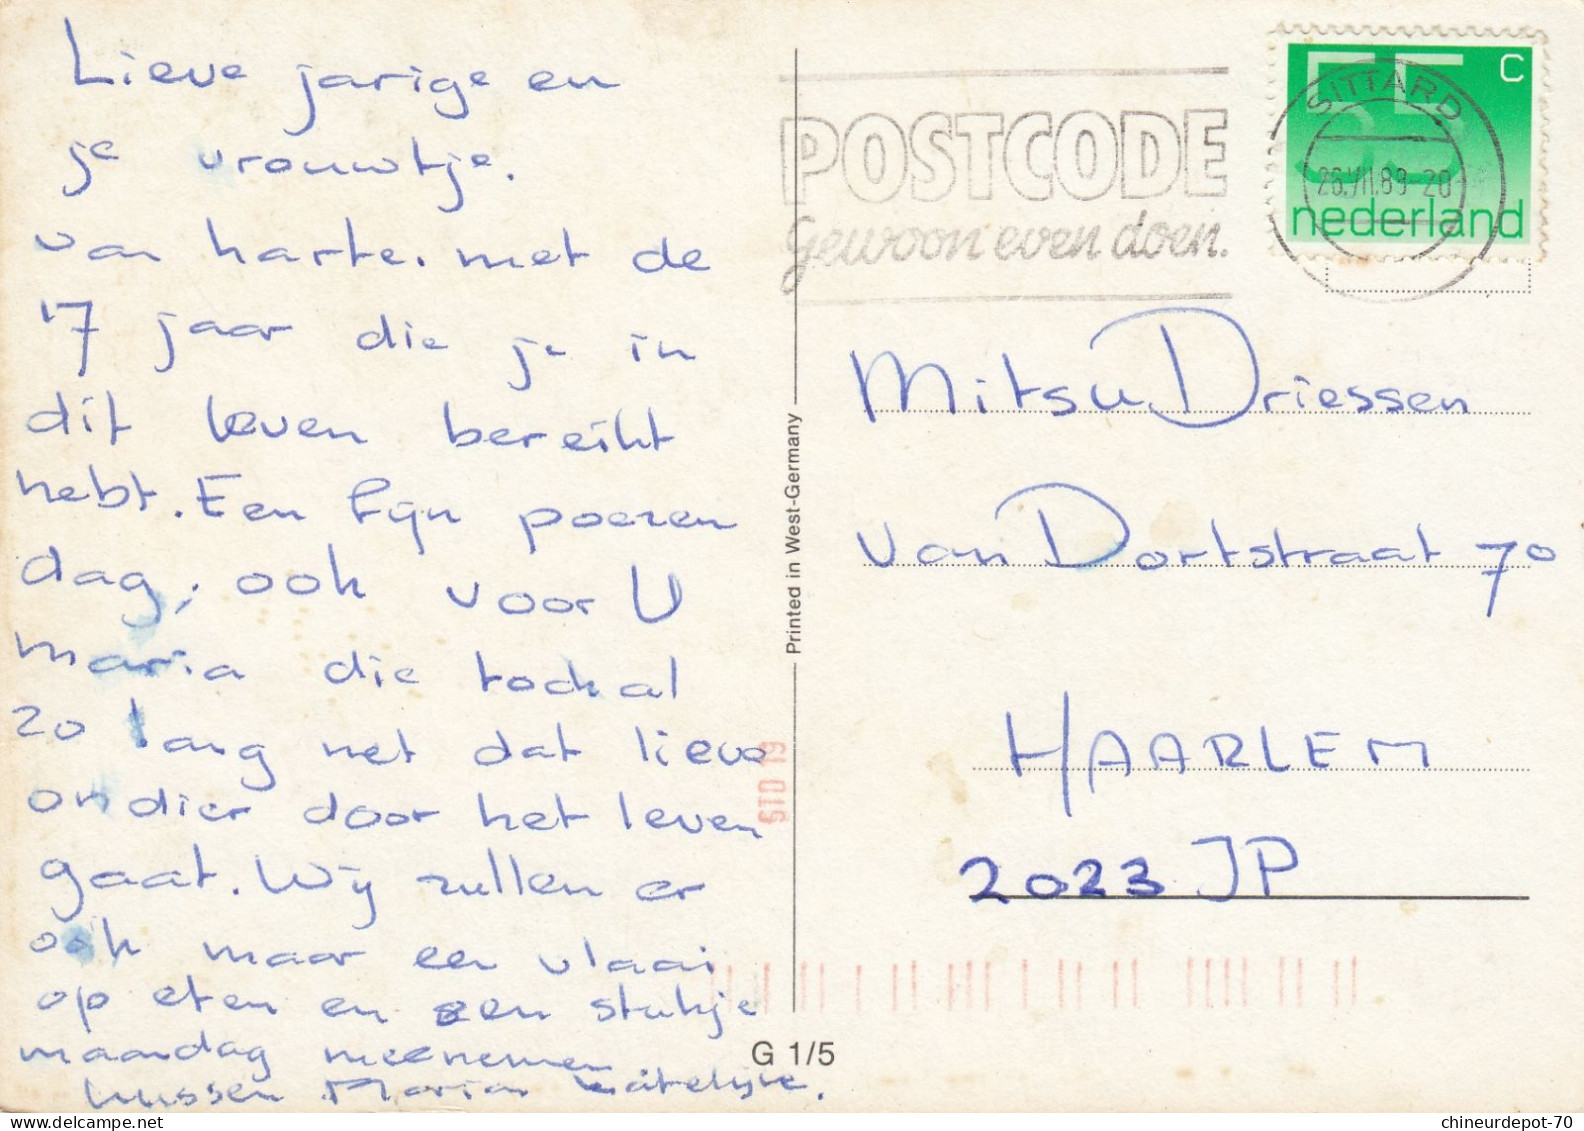 Lieve jarige en
je vrouwtje.
van harte. met de
17 jaar die je in
dit leven bereikt
hebt. Een fijn poezen
dag, ook voor U
maria die toch al
20 lang met dat lieve
ondier door het leven
gaat. Wij zullen er
ook maar een vlaai
op eten en een stukje
maandag meenemen
kussen Marian
POSTCODE
gewoon even doen.
55 c
nederland
SITTARD
26.VII.89-20
Mitsu Driessen
van Dortstraat 70
HAARLEM
2023 JP
Printed in West-Germany
STD 19
G 1/5
chineurdepot-70